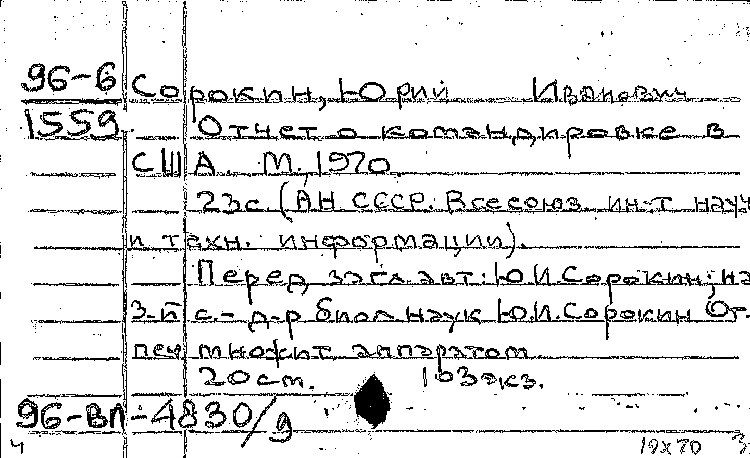 96-6 Сорокин, Юрий Иванович
1559 Отчет о командировке в
США. М., 1970.
23с. (АН СССР. Всесоюз. ин-т науч
и техн. информации).
Перед загл. авт: Ю.И.Сорокин; на
3-й с.- д-р биол наук Ю.И.Сорокин От-
печ множит. аппаратом
20 см. 103 экз.
96-ВЛ-4830/9
ч 19х70 3